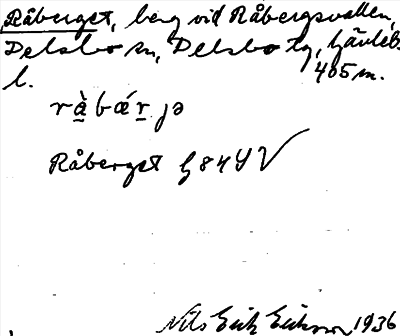 Råberget, berg vid Råbergsvallen,
Delsbo sn, Delsbo tg, Gävleb.
l. 405 m.
rà̱bǽṟjə
Råberget G 84 Y V
Nils Erik Eriksson 1936